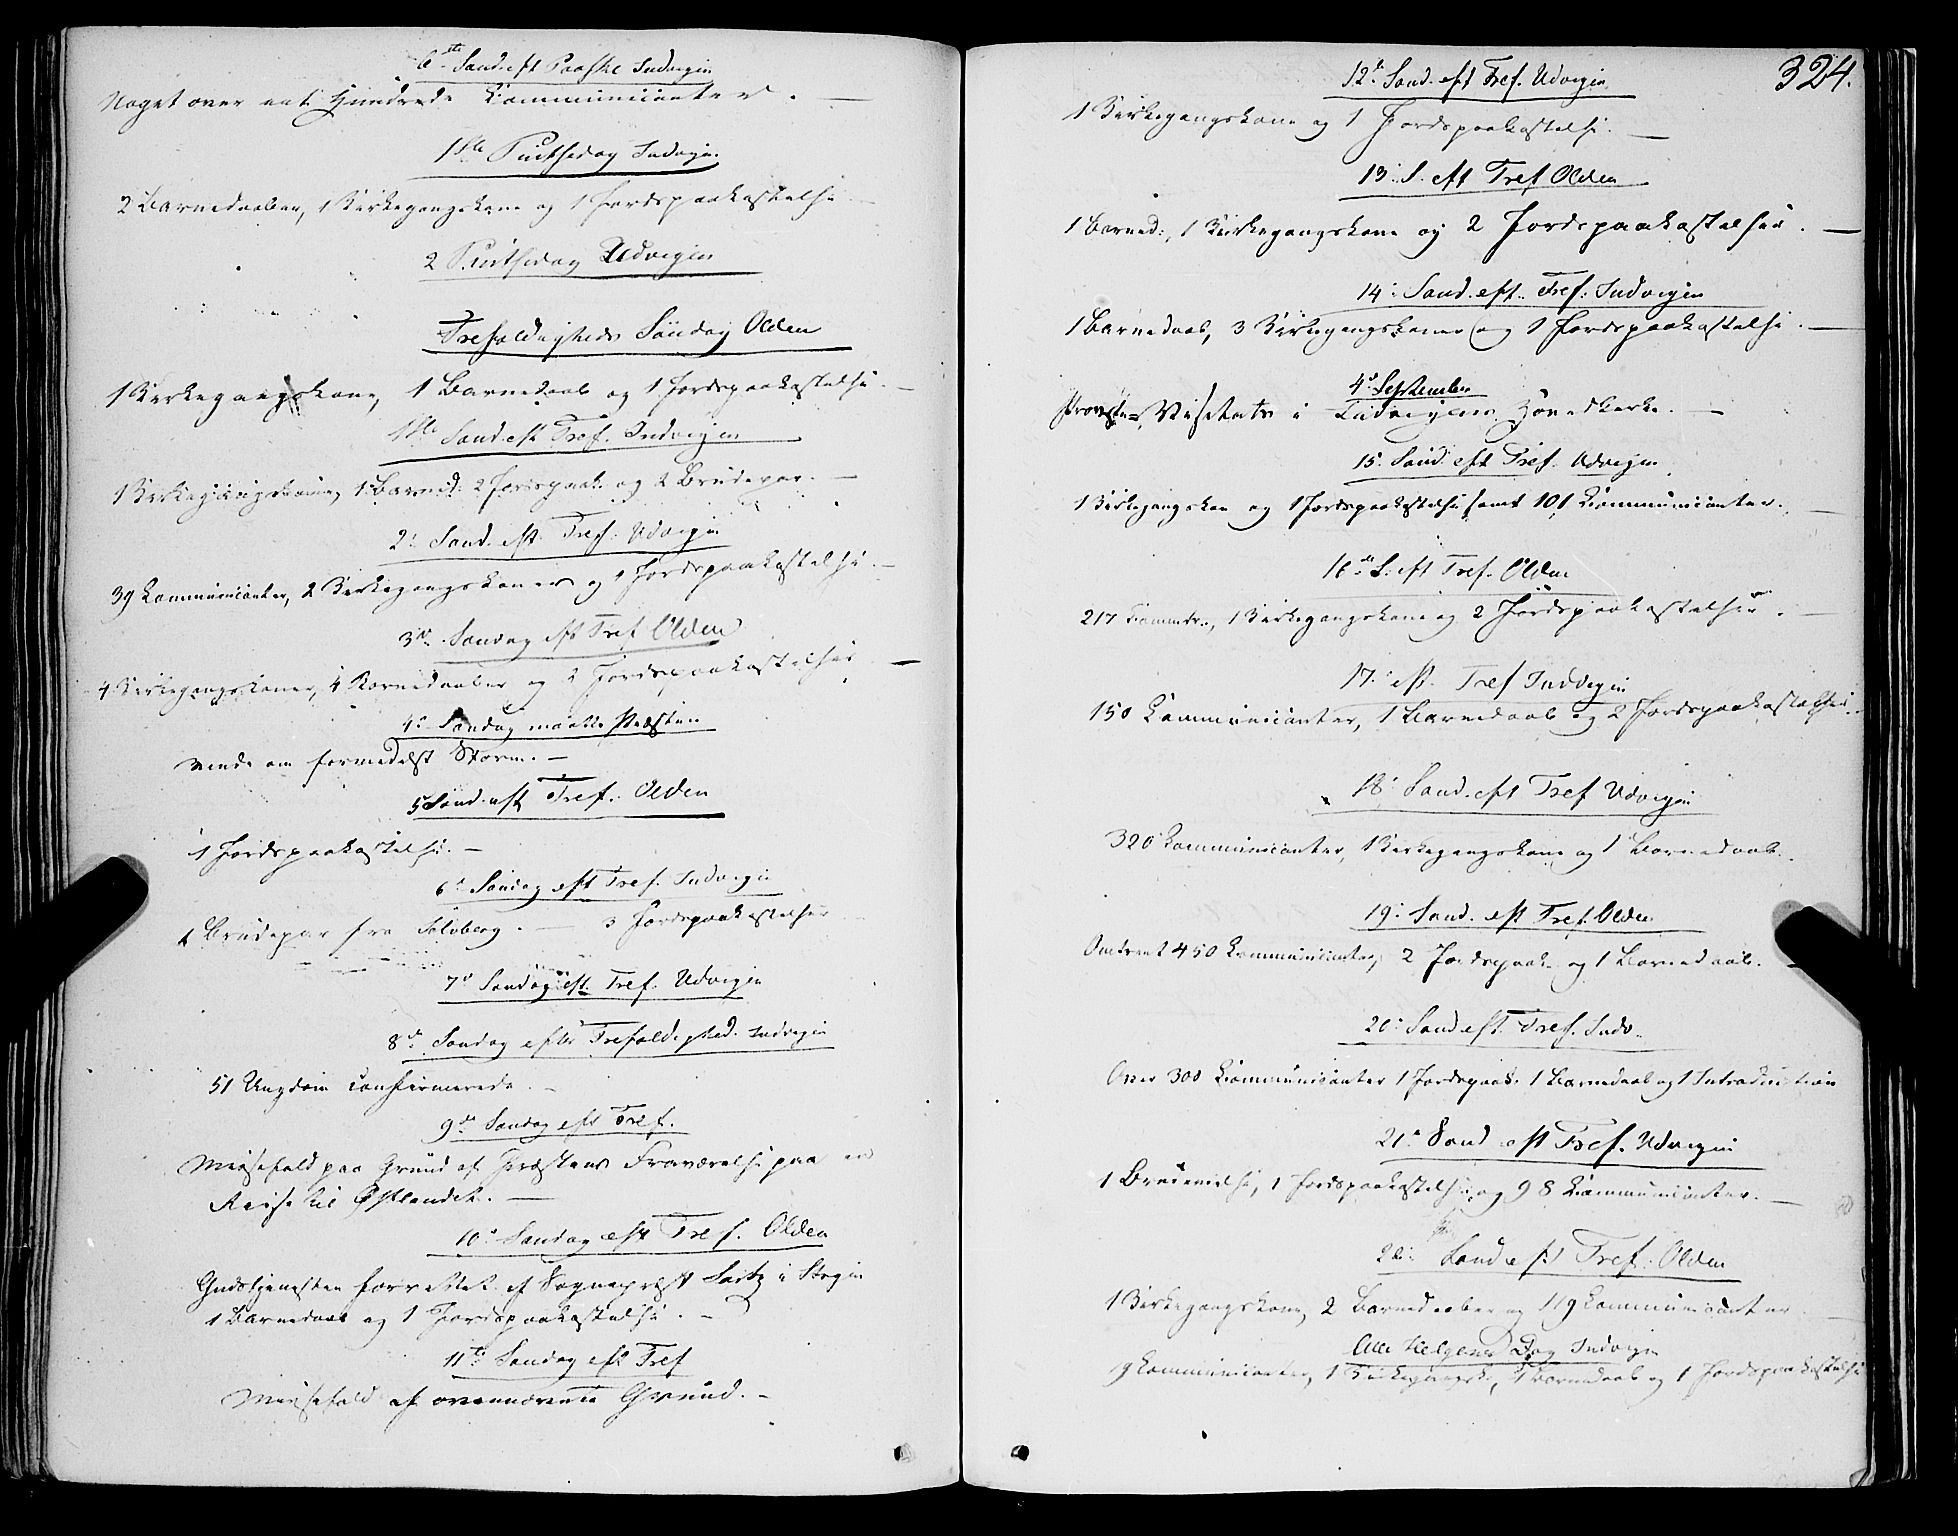 6te Sønd. eft Paaske Indvigen
Noget over eet Hundrede Communicanter. —
1ste Pintsedag Indvig.
2 Barnedaaber, 1 Kirkegangskone og 1 Jordspaakastelse —
2 Pintsedag Udvigen
Trefoldigheds Søndag Olden
1 Kirkegangskone, 1 Barnedaab og 1 Jordspaakastelse. —
1ste Sønd. eft Tref. Indvigen
1 Kirkegangskone, 1 Barned: 2 Jordspaak. og 2 Brudepar. —
2: Sønd. eft. Tref. Udvigen
39 Communicanter, 2 Kirkegangskoner og 1 Jordspaakastelse. —
3d. Søndag eft Tref Olden
4 Kirkegangskoner, 4 Barnedaaber og 2 Jordspaakastelser. —
4d Søndag maatte Præsten
vende om formedelst Storm. —
5 Sønd. eft Tref. Olden
1 Jordspaakastelse. —
6d Søndag eft Tref. Indvigen
1 Brudepar fra — 3 Jordspaakastelser
7d Søndag eft. Tref. Udvigen
8d. Søndag efter Trefoldighed. Indvigen
51 Ungdom confirmerede. —
9de Søndag eft Tref.
Messefald paa Grund af Præstens Fraværelse paa en
Reise til Østlandet. —
10d Søndag eft Tref. Olden
Gudstjenesten forrettet af Sogneprest i
1 Barnedaab og 1 Jordspaakastelse. —
11te Søndag eft Tref
Messefald af ovennævnte Grund. —
324.
12te Sønd. eft Tref. Udvigen
1 Kirkegangskone og 1 Jordspaakastelse. —
13: S. eft Tref Olden
1 Barned:, 1 Kirkegangskone og 2 Jordspaakastelser. —
14: Sønd. eft. Tref: Indvigen
1 Barnedaab, 3 Kirkegangskoner og 1 Jordspaakastelse. —
4d September
Provste-Visitats i Indvigens Hovedkirke. —
15. Sønd. eft Tref. Udvigen
1 Kirkegangskone og 1 Jordspaakastelse samt 101 Communicanter. —
16de S: eft Tref. Olden
217 Commun., 1 Kirkegangskone og 2 Jordspaakastelser. —
17: eft. Tref Indvigen
150 Communicanter, 1 Barnedaab og 2 Jordspaakastelser. —
18: Sønd. eft Tref Udvigen
320 Communicanter, 1 Kirkegangskone og 1 Barnedaab.
19: Sønd. eft Tref. Olden
Omtrent 450 Communicanter, 2 Jordspaak. og 1 Barnedaab. —
20: Sønd eft. Tref. Indv.
Over 300 Communicanter 1 Jordspaak. 1 Barnedaab og 1 Introduction
21d Sønd eft Tref. Udvigen
1 Brudevielse, 1 Jordspaakastelse og 98 Communicanter. —
22: Sønd eft Tref. Olden
1 Kirkegangskone, 2 Barnedaaber og 119 Communicanter
Alle Helgens Dag Indvigen
19 Communicanter, 1 Kirkegangsk., 1 Barnedaab og 1 Jordspaakastelse